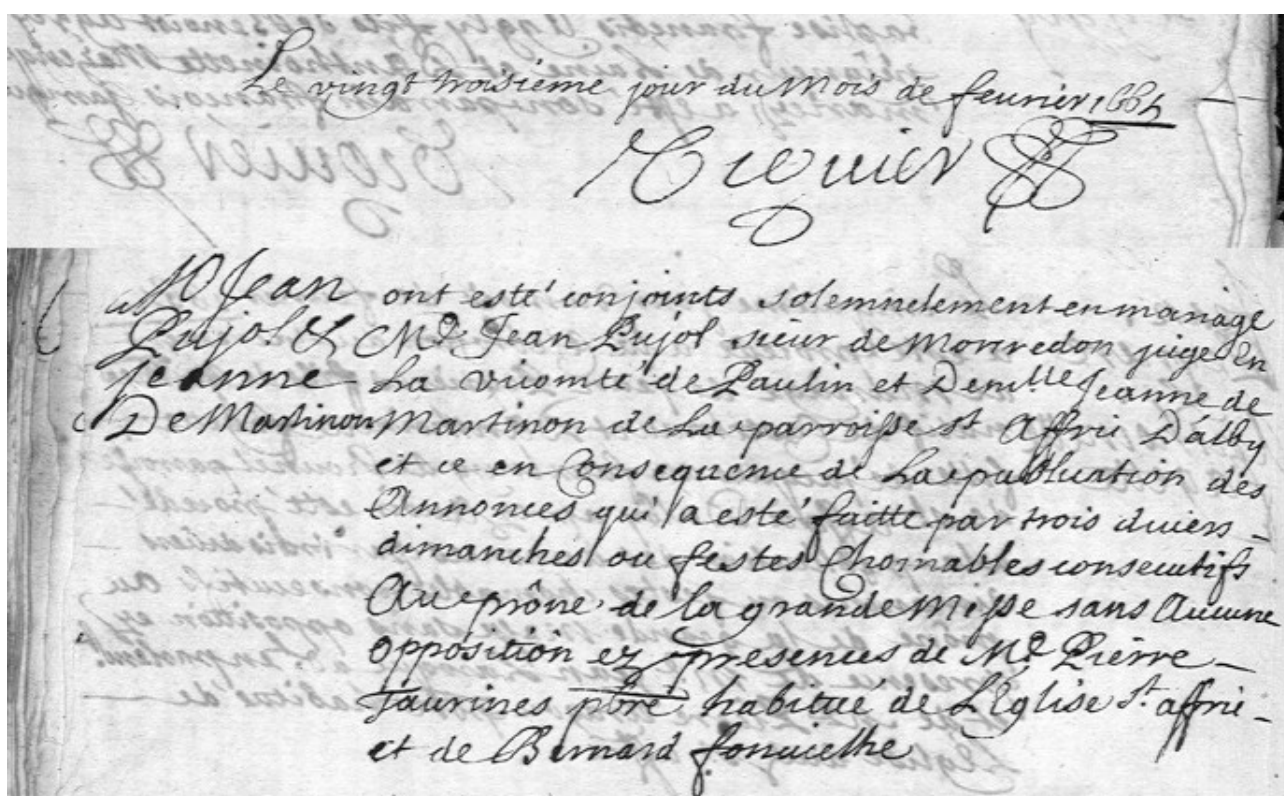 Le vingt troisiéme jour du Mois de feurier 1664
Mᵉ Jean
Pujol &
Jeanne
De Martinon
ont esté conjoints solemnelement en mariage
Mᵉ Jean Pujol sieur de Monredon juge En
La vicomté de Paulin et Demˡˡᵉ Jeanne de
Martinon de La parroisse sᵗ Affric D'alby
et ce en Consequence de La publication des
Annonces qui a esté faitte par trois diuers
dimanches ou festes Chomables consecutifs
Au prône de la grande Messe sans Aucune
opposition ez presences de Mᵉ Pierre
Taurines pbre habitué de L'Eglise Sᵗ affric
et de Bernard fonuielhe